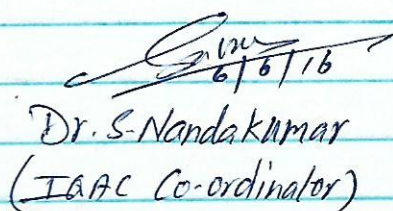 6/6/16
Dr. S. Nandakumar
(IQAC Co-ordinator)